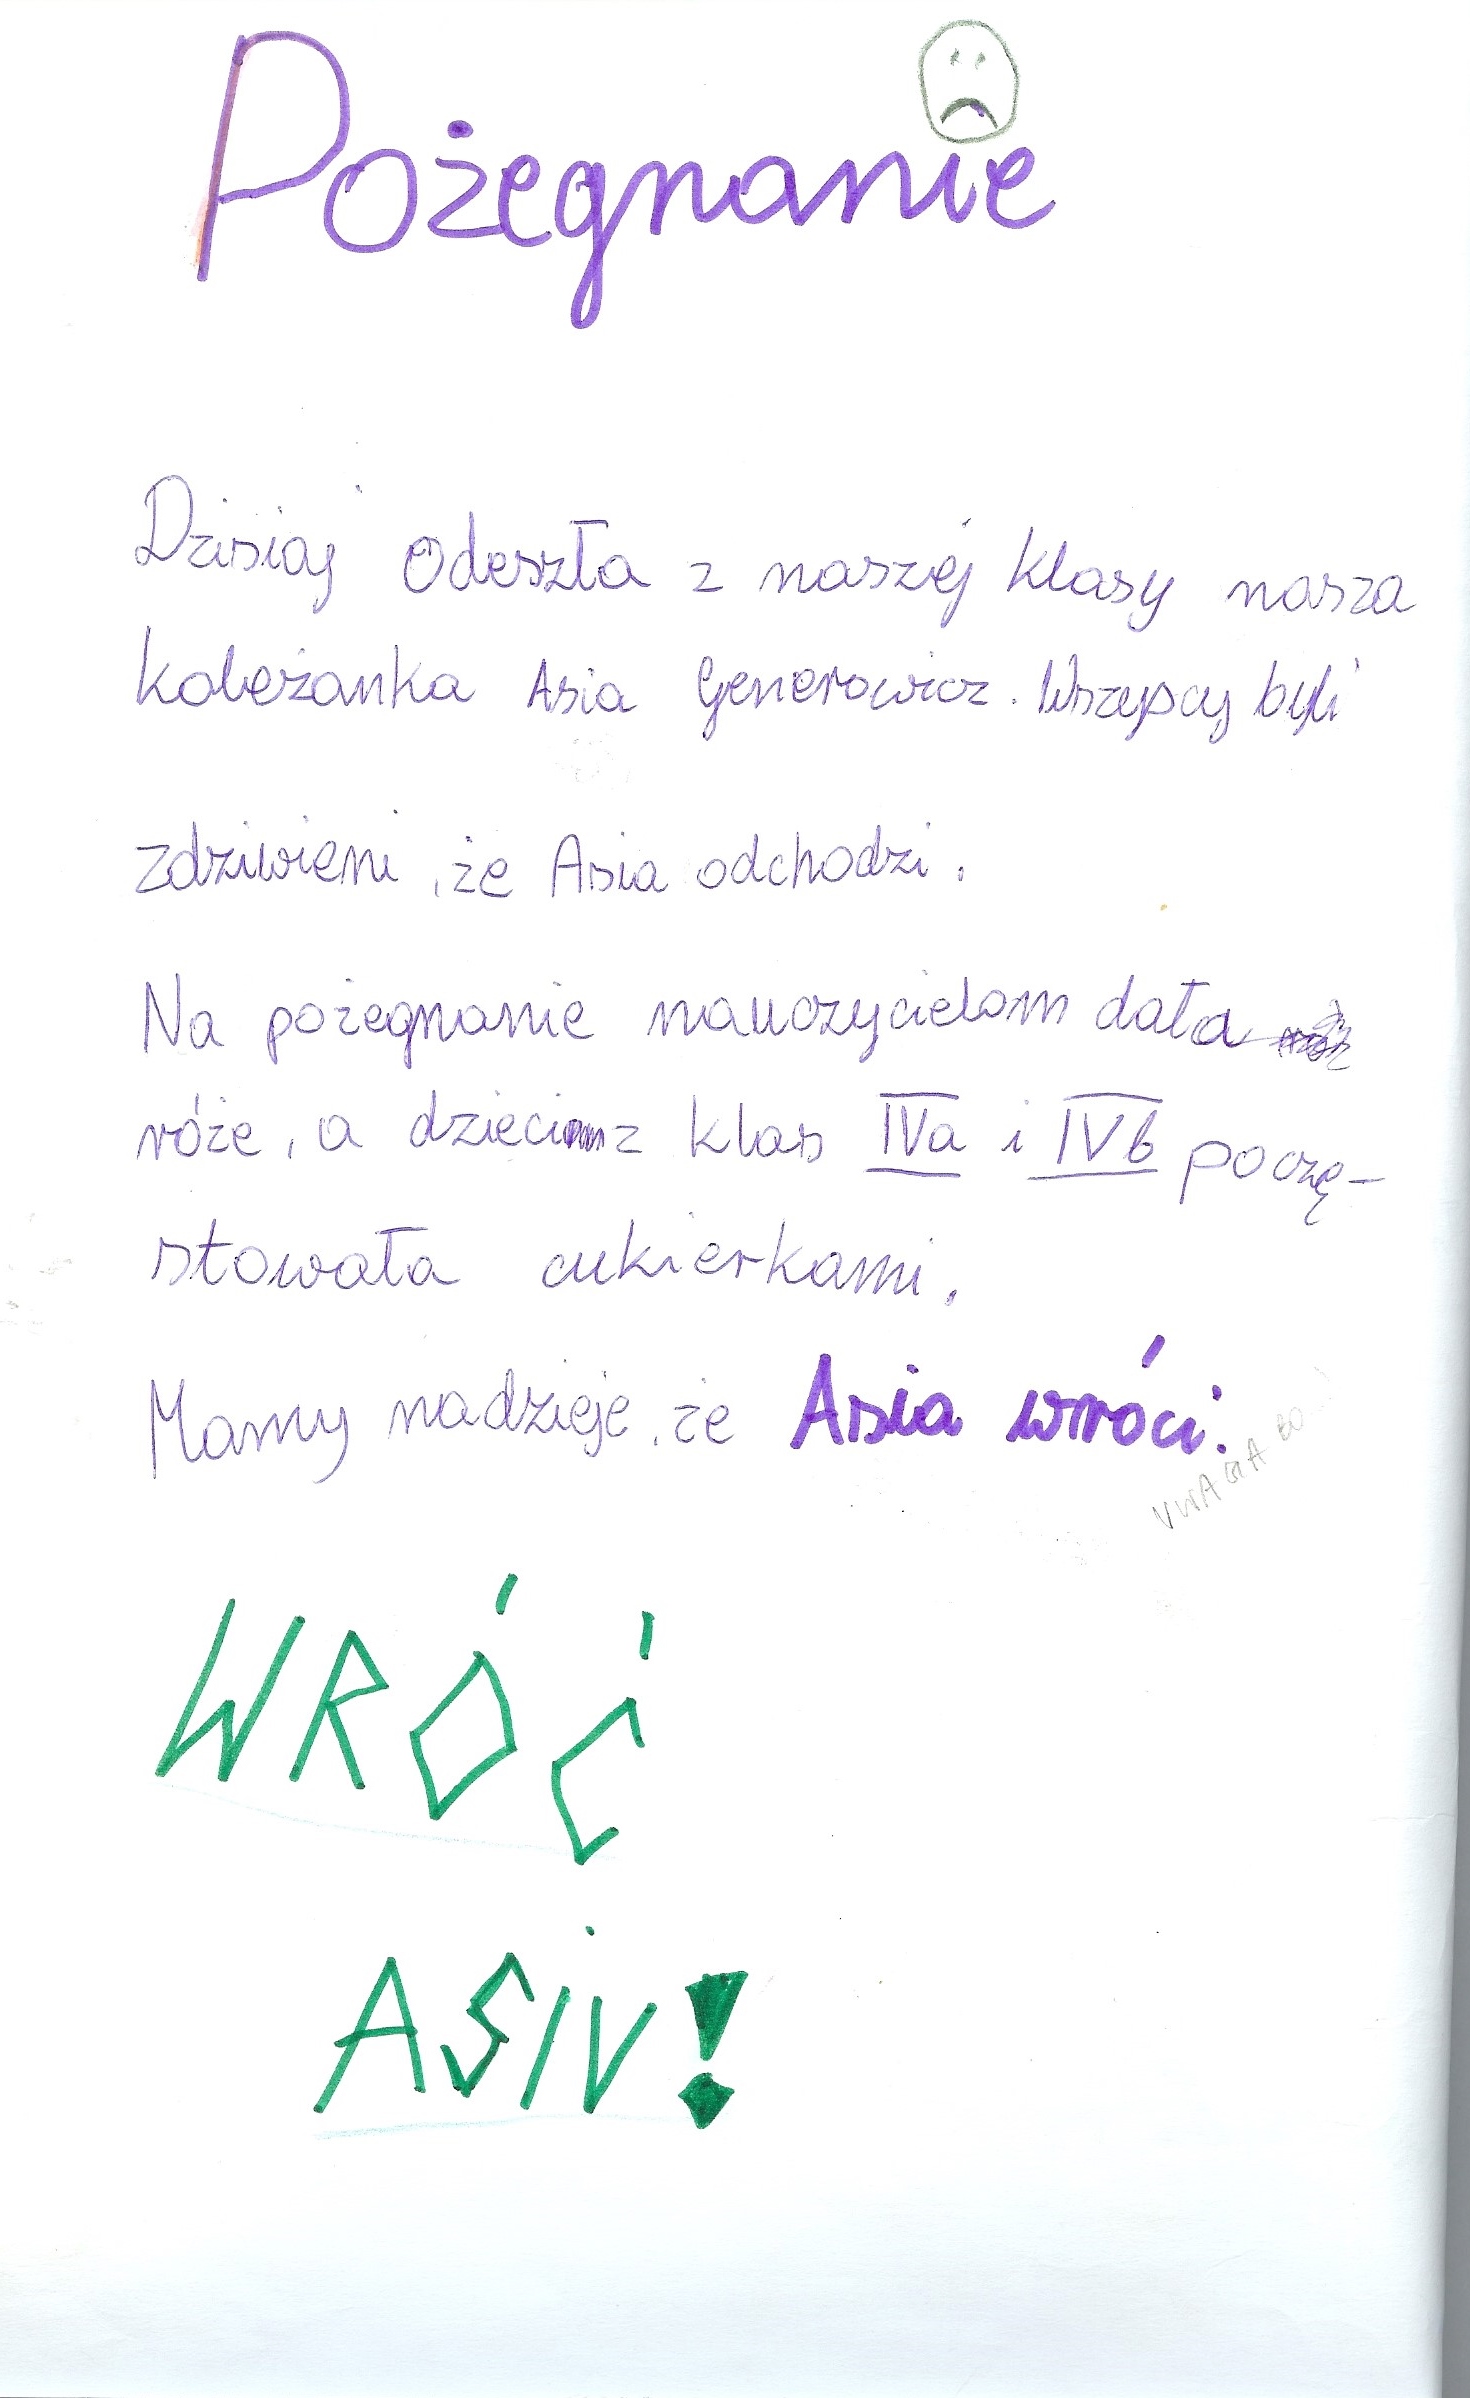 Pożegnanie
Dzisiaj odeszła z naszej klasy nasza
koleżanka Asia Generowicz. Wszyscy byli
zdziwieni, że Asia odchodzi.
Na pożegnanie nauczycielom dała
róże, a dzieciom z klas IVa i IVb poczę-
stowała cukierkami.
Mamy nadzieje, że Asia wróci.
WRÓĆ
ASIU!